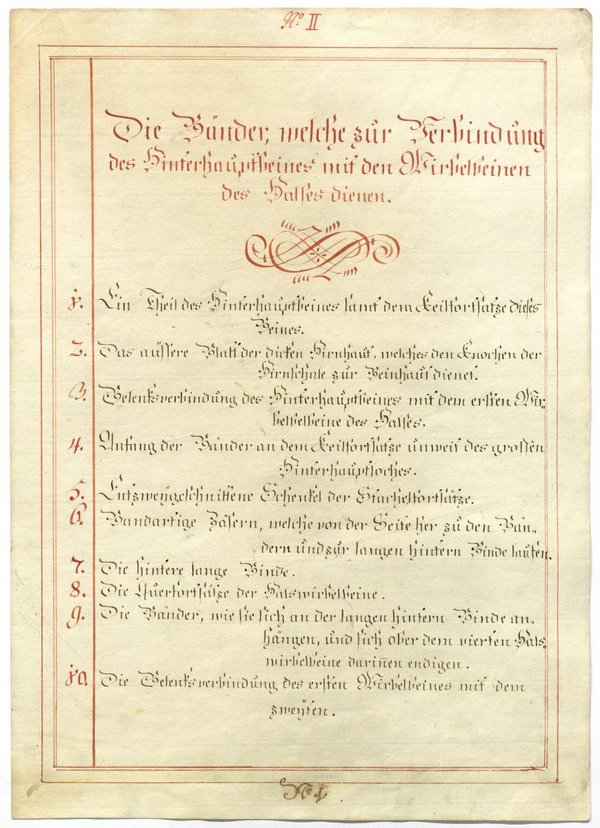 No II
Die Bänder, welche zur Verbindung
des Hinterhauptbeines mit den Wirbelbeinen
des Halses dienen.
1. Ein Theil des Hinterhauptbeines samt dem Keilfortsatze dieses
Beines.
2. Das äussere Blatt der dicken Hirnhaut, welches den Knochen der
Hirnschale zur Beinhaut dienet.
3. Gelenksverbindung des Hinterhauptbeines mit dem ersten Wir-
belbeine des Halses.
4. Anfang der Bänder an dem Keilfortsatze unweit des großen
Hinterhauptloches.
5. Entzweygeschnittene Schenkel der Stachelfortsätze.
6. Bandartige Fasern, welche von der Seite her zu den Bän-
dern und zur langen hintern Binde laufen.
7. Die hintere lange Binde.
8. Die Querfortsätze der Halswirbelbeine.
9. Die Bänder, wie sie sich an der langen hintern Binde an-
hängen, und sich ober dem vierten Hals
wirbelbeine darin̅en endigen.
10. Die Gelenksverbindung des ersten Wirbelbeines mit dem
zweyten.